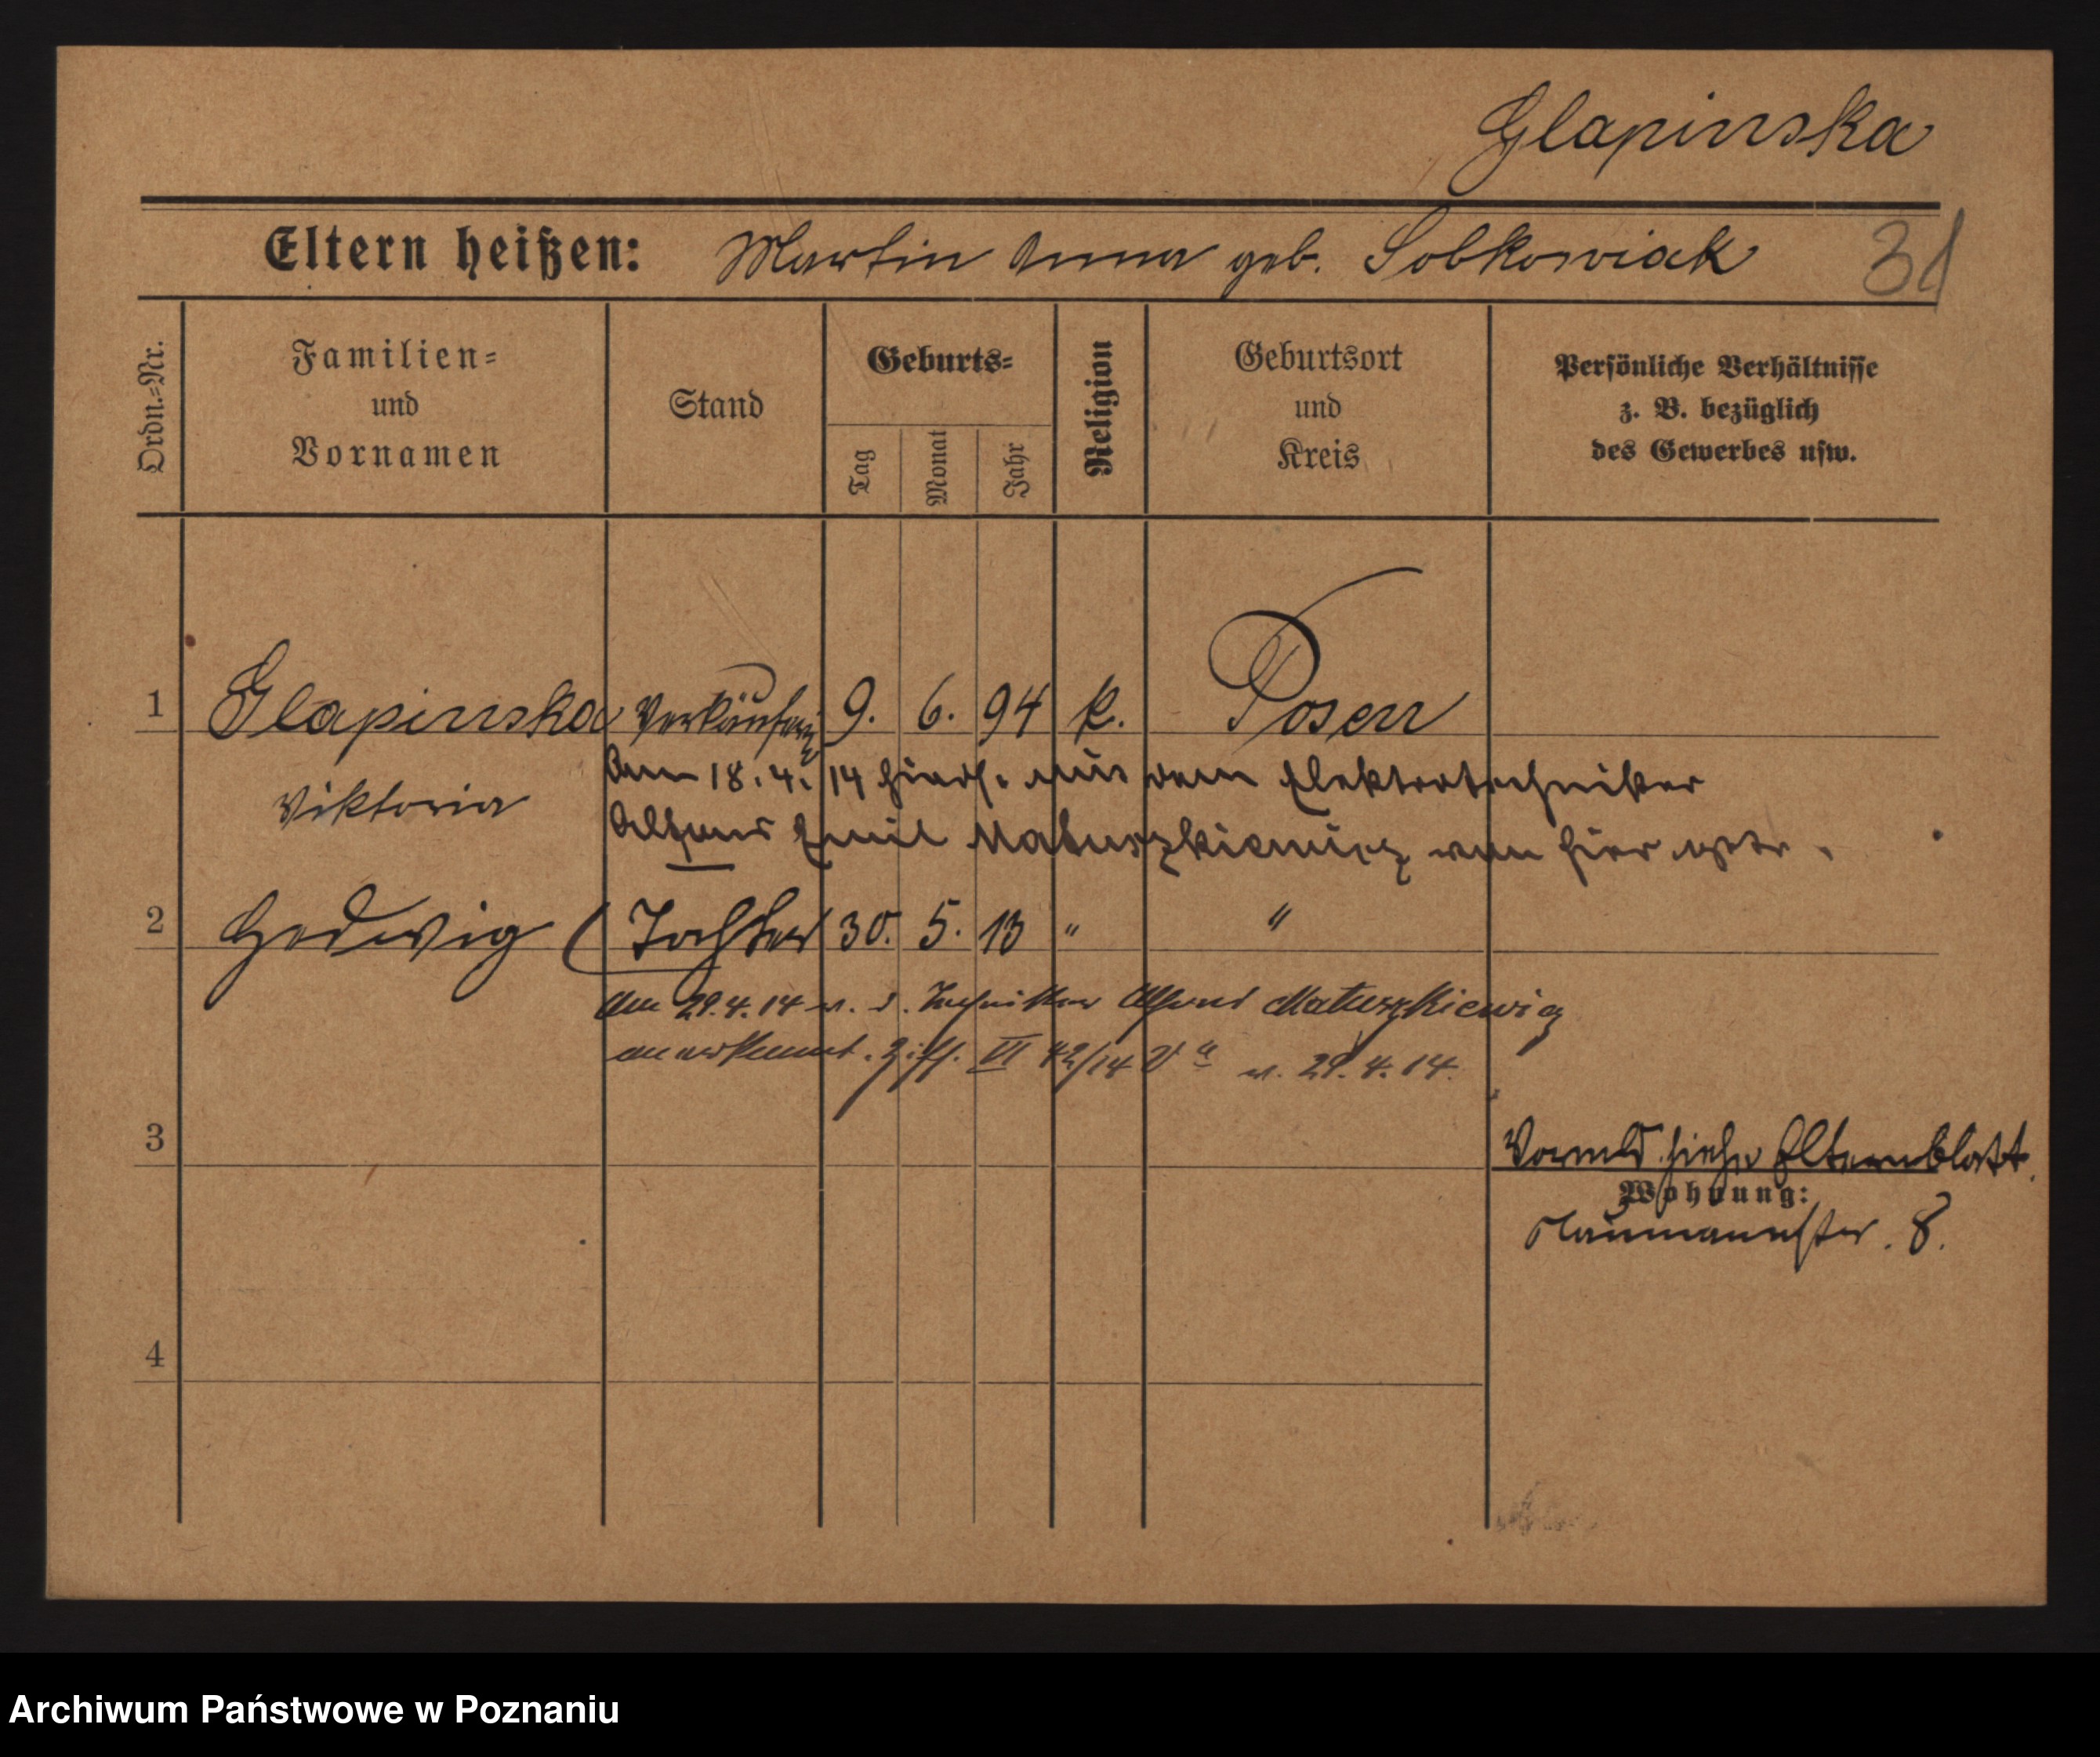 Glapinska
Eltern heißen: Martin Anna geb. Sobkowiak 31
Ordn.=Nr. Familien= und Vornamen Stand Geburts= Tag Monat Jahr Religion Geburtsort und Kreis Persönliche Verhältnisse z. B. bezüglich des Gewerbes usw.
1 Glapinska Verkäuferin 9. 6. 94 k. Posen
Viktoria
Am 18.4.14 hiers. mit dem Elektrotechniker
Alfons Emil Matuszkiewicz von hier
2 Hedwig (Tochter 30. 5. 13 " "
Am 29.4.14 v. d. Techniker Alfons Matuszkiewicz
anerkannt. Ziff. VI 42/14 V a v. 29.4.14.
3 siehe Elternblatt.
Wohnung:
Naumannstr. 8.
4
Archiwum Państwowe w Poznaniu